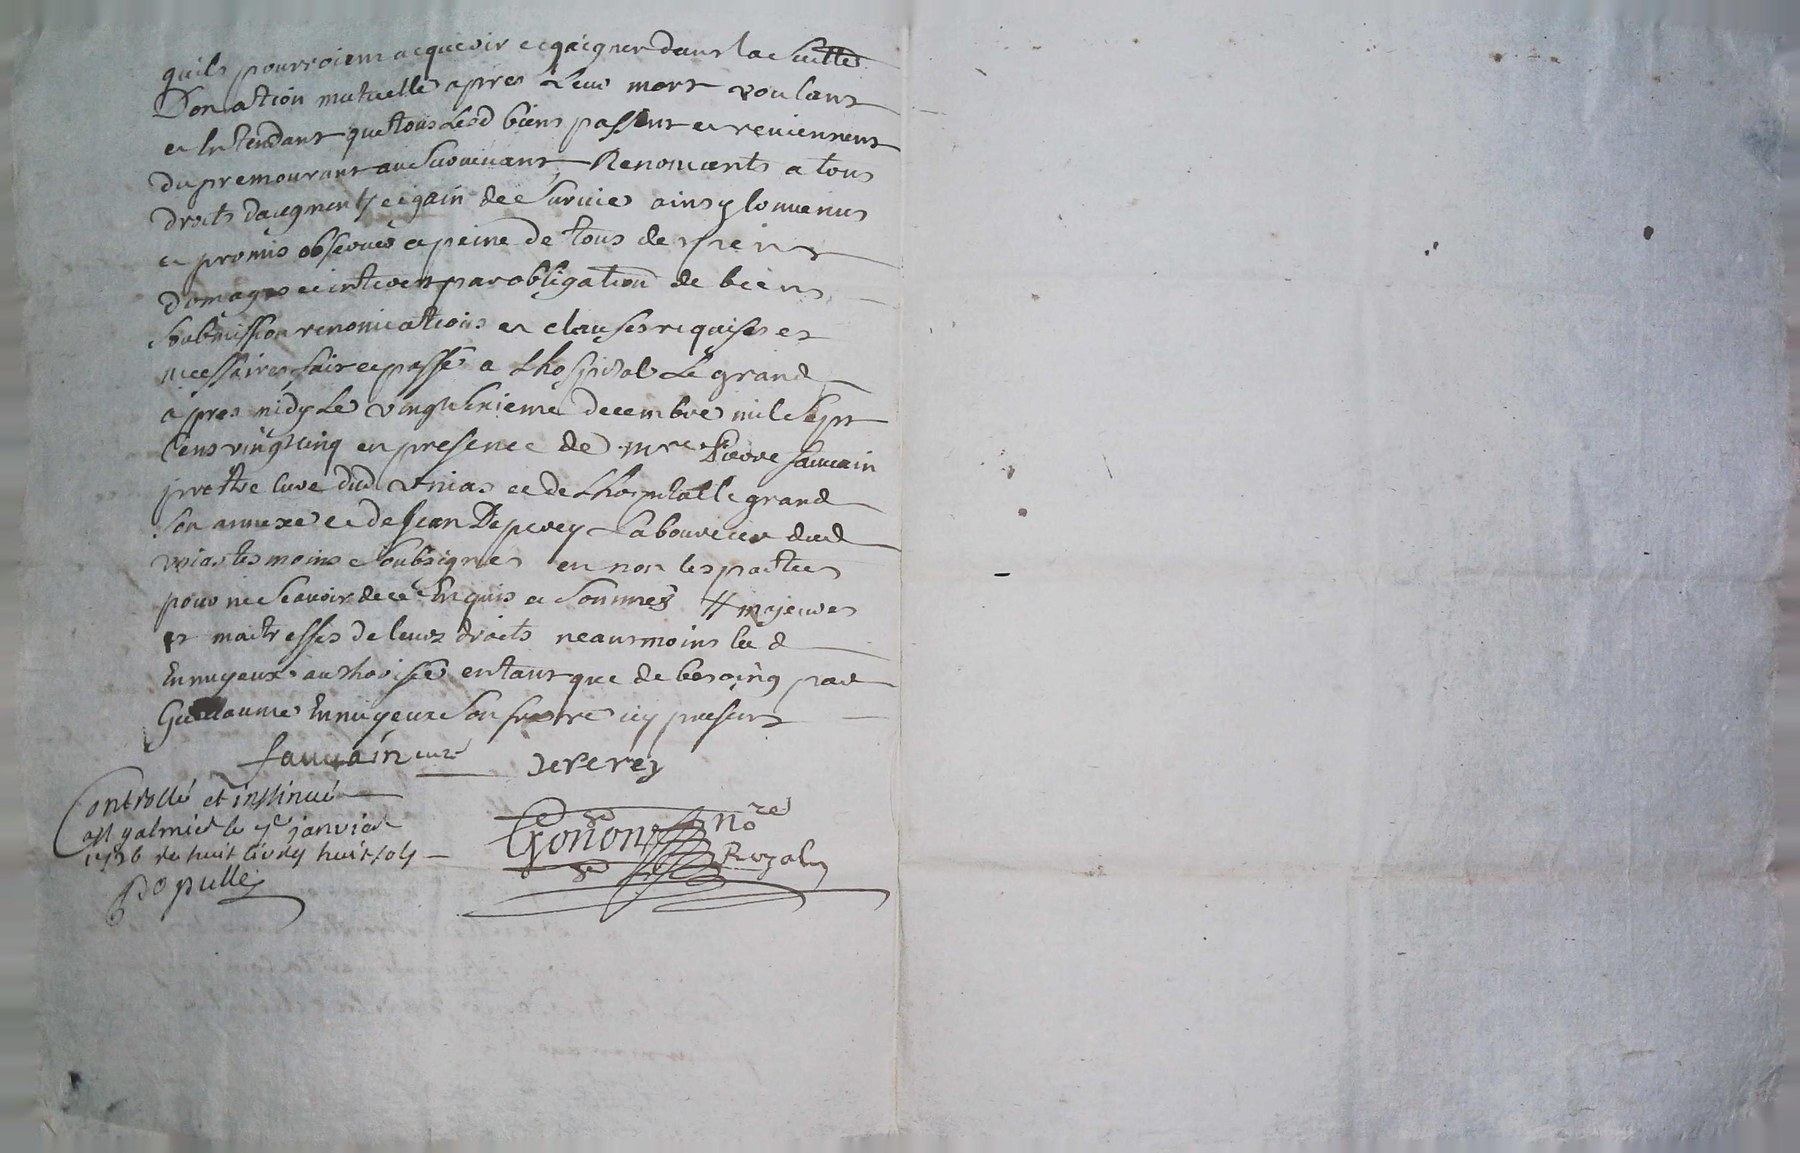 quils pourroient acquerir et gaigner dans la suitte
Donation mutuelle apres Leur mort voulant
et Entendant que tous Lesd biens passent et reviennent
du premourant au survivant Renoncants a tous
droits daugment et gain de survies ainsy convenus
et promis observer a peine de tous depens
domages et interest par obligation de biens
soubmission renonciations et clauses requises et
necessaires fait et passé a Lhospital Le grand
apres midy Le vingt unieme decembre mil sept
Cens vingt cinq en presence de mre Pierre fauvain
prettre curé dud unias et de Lhospital le grand
son annexe et de Jean Deperey Laboureur dud
unias tesmoins soubsignes et non les parties
pour ne scavoir de ce Enquis et sommes # majeures
et maitresses de leurs droits neausmoins led
Ennuyeux authorisé entant que de besoing par
Guillaume Ennuyeux son frere icy present
fauvain curé deperey
Controllé et insinué
a st galmier le 7e janvier
1726 reçu huit livres huit sols
Gonon nore
Royal
Populle